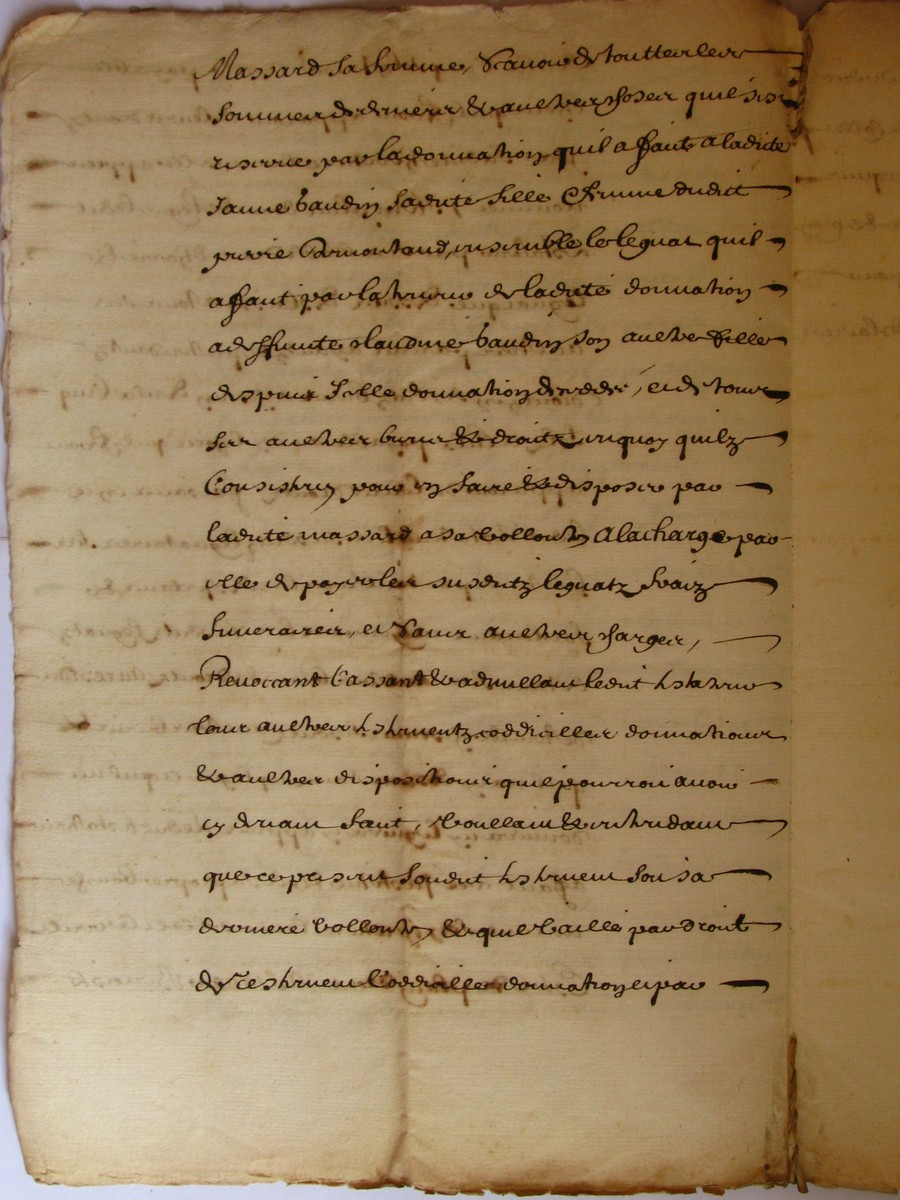 Massard sa femme, scavoir de touttes les
sommes de deniers & aultres choses quil sest
reservé par la donnation quil a faite a ladite
Janne baudin sadite fille & femme dudit
pierre Armontaud, ensemble le leguat quil
a faict par la teneur de ladite donnation
a deffunte Claudine baudin son aultre fille
despuis Icelle donnation deceddé, et de tous
ses aultres biens & droitz en quoy quilz
Consistent pour en faire & disposer par
ladite massard a sa vollonté A la charge par
elle de payer les susditz leguatz fraiz
funeraires, et aultres charges,
Revoccant Cassant & adnullant ledit testateur
tous aultres testamentz coddicilles donnations
& aultres dispositions quil pourroit avoir
cy devant faict, Voullant & entendant
que ce present soudit testament soit sa
derniere vollonté & quil vaille par droit
de testament Coddicille donnation et par